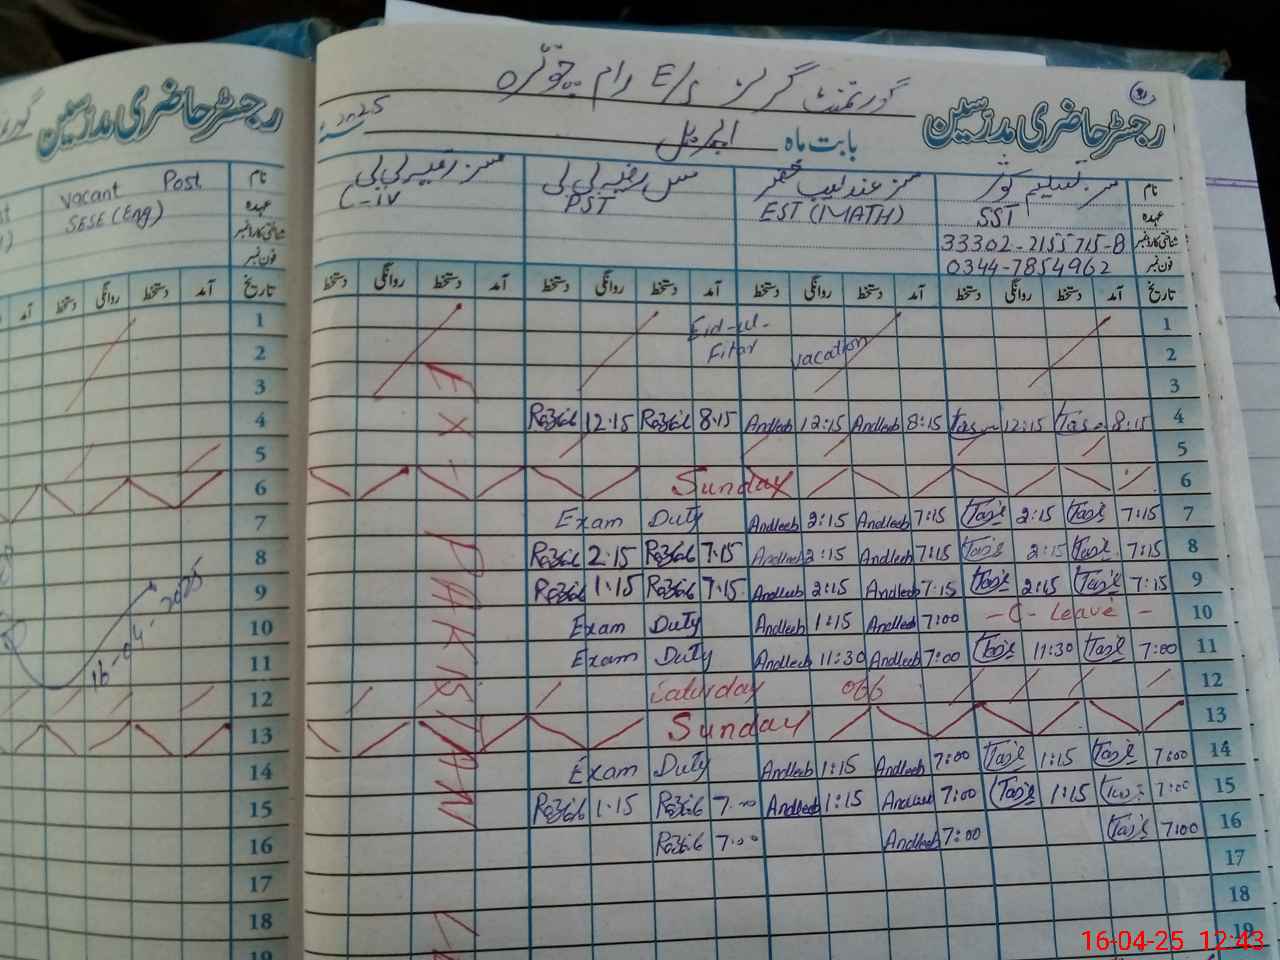 رجسٹر حاضری مدرسین
گورنمنٹ گرلز E/S رام چوترہ
رجسٹر حاضری مدرسین
بابت ماہ اپریل 2025
نام
مسز تسلیم کوثر
مسز عندلیب خضر
مس رضیہ بی بی
مسز رقیہ بی بی
عہدہ SST
EST (MATH)
PST
C-iv
شناختی کارڈ نمبر 33302-2155715-8
فون نمبر 0344-7854962
نام
Vacant Post
عہدہ
SESE (Eng)
شناختی کارڈ نمبر
فون نمبر
تاریخ آمد دستخط روانگی دستخط آمد دستخط روانگی دستخط آمد دستخط روانگی دستخط آمد دستخط روانگی دستخط
تاریخ آمد دستخط روانگی دستخط آمد
Eid-ul- 1
Fitar vacation 2
3
Razia 12:15 Razia 8:15 Andleeb 12:15 Andleeb 8:15 Tas 12:15 Tas 8:15 4
5
Sunday 6
Exam Duty Andleeb 2:15 Andleeb 7:15 Tas 2:15 Tas 7:15 7
Razia 2:15 Razia 7:15 Andleeb 2:15 Andleeb 7:15 Tas 2:15 Tas 7:15 8
Razia 1:15 Razia 7:15 Andleeb 2:15 Andleeb 7:15 Tas 2:15 Tas 7:15 9
Exam Duty Andleeb 1:15 Andleeb 7:00 - C - Leave - 10
Exam Duty Andleeb 11:30 Andleeb 7:00 Tas 11:30 Tas 7:00 11
Saturday off 12
Sunday 13
Exam Duty Andleeb 1:15 Andleeb 7:00 Tas 1:15 Tas 7:00 14
Razia 1:15 Razia 7:00 Andleeb 1:15 Andleeb 7:00 Tas 1:15 Tas 7:00 15
Razia 7:00 Andleeb 7:00 Tas 7:00 16
17
18
19
EX-PAKISTAN
1
2
3
4
5
6
7
8
9
10
11
12
13
14
15
16
17
18
19
16-04-2025
16-04-25 12:43